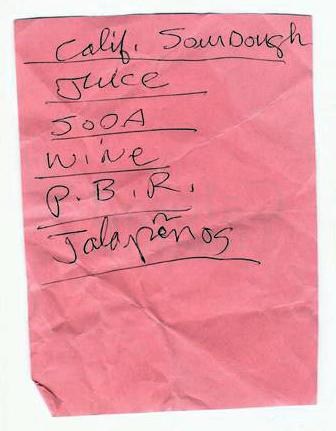 Calif. SourDough
Juice
SODA
WiNe
P.B.R.
Jalapeños